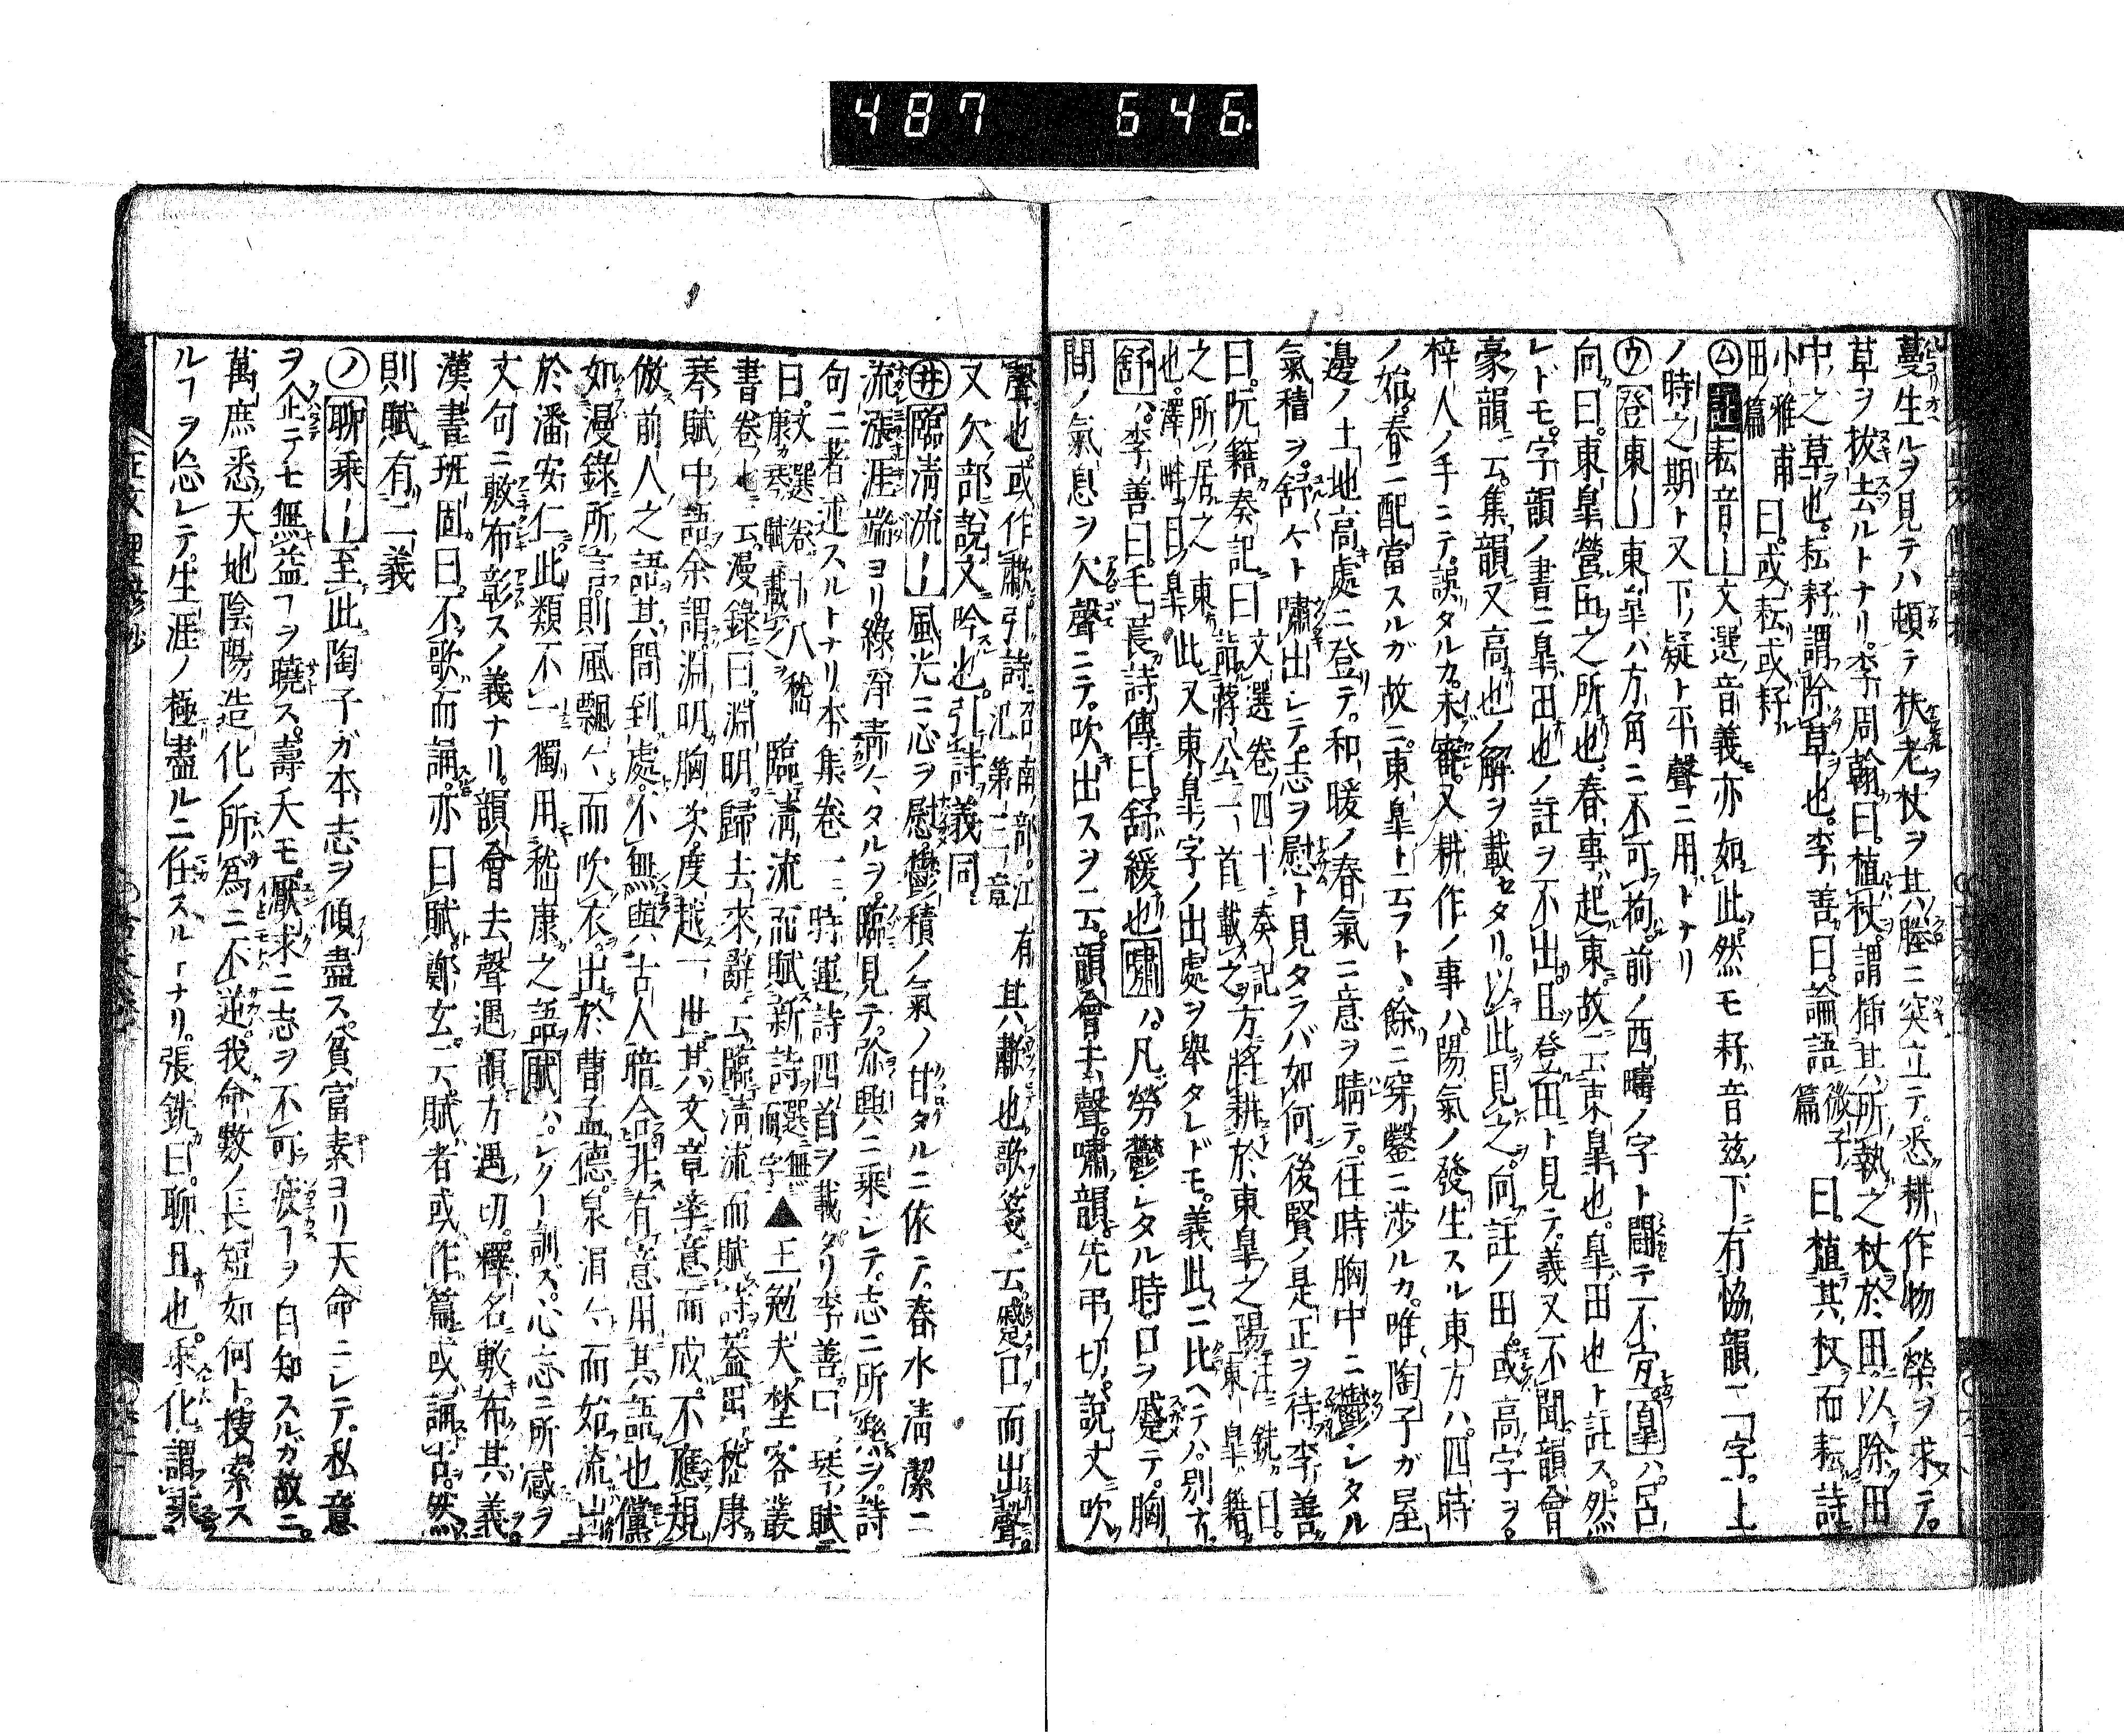 487 646
蔓生ルヲ見テハ頓テ扶老杖ヲ其ノ塍ニ突立テ悉耕作物ノ榮ヲ求テ
草ヲ拔去ルトナリ李周翰曰植杖謂插其所執之杖於田以除田
中之草也耘耔謂除草也李善曰論語微子篇曰植其杖而耘詩
小雅甫田篇曰或耘或耔
㋰耘音〡文選音義亦如此然モ耔音玆下有協韻二字上
ノ時之期ト又下疑ト平聲ニ用トナリ
㋒登東〡東皐ハ方角ニ不可拘前ノ西疇ノ字ト鬪テ不宜皐ハ呂
向曰東皐營田之所也春事起東故云東皐也皐田也ト註ス然
レドモ字韻ノ書ニ皐田也ノ註ヲ不出且登田ト見テ義又不聞韻會
豪韻云集韻又高也ノ解ヲ載セタリ以此見之向註ノ田或高字ヲ
梓人ノ手ニテ誤タルカ未審又耕作ノ事ハ陽氣ノ發生スル東方ハ四時
ノ始春ニ配當スルガ故ニ東皐ト云フト餘ニ穿鑿ニ涉ルカ唯陶子ガ屋
邊ノ土地高處ニ登テ和暖ノ春氣ニ意ヲ晴テ往時胸中ニ鬱シタル
氣積ヲ舒ケト嘯出レテ志ヲ慰ト見タラバ如何後賢ノ是正ヲ待李善
曰阮籍奏記曰文選卷四十奏記詣蔣公一首載之方將耕於東皐之陽注銑曰東皐籍
之所居之東也澤畔曰皐此又東皐字ノ出處ヲ舉タレドモ義此ニ比ヘテハ別ナリ
舒ハ李善曰毛萇詩傳曰舒緩也嘯ハ凡勞鬱シタル時口ヲ蹙テ胸
間ノ氣息ヲ欠聲ニテ吹出スヲ云韻會去聲嘯韻先弔切說文吹
聲也或作歗引詩召南江有汜第三章其歗也歌箋云蹙口而出聲
又欠部說文吟也引詩義同
㋼臨淸流〡風光ニ心ヲ慰鬱積ノ氣ノ甘タルニ依テ春水淸潔ニ
流漲涯端ヨリ綠淨靑々タルヲ臨見テ弥興ニ乘シテ志ニ所懸ヲ詩
句ニ著述スルトナリ本集卷一時運詩四首ヲ載タリ李善曰琴賦
曰文選卷十八嵇康琴賦載之臨淸流而賦新詩選無而字▲王勉夫埜客叢
書卷七云漫錄曰淵明歸去來辭云臨淸流而賦詩葢用嵇康
琴賦中語余謂淵明胸次度越一世其文章率意而成不應規
倣前人之語其間到處不無與古人暗合非有意用其語也儻
如漫錄所言則風飄々而吹衣出於曹孟德泉涓々而始流出
於潘安仁此類不一獨用嵆康之語賦ハシクト訓ス心志ニ所感ヲ
文句ニ敷布彰スノ義ナリ韻會去聲遇韻方遇切釋名敷布其義
漢書班固曰不歌而誦亦曰賦鄭玄云賦者或作篇或誦古然
則賦有二義
㋨聊乘〡至此陶子ガ本志ヲ傾盡ス貧富素ヨリ天命ニシテ私意
ヲ企テモ無益ヿヲ曉ス壽夭モ厭求ニ志ヲ不可疲ヿヲ自知スルガ故ニ
萬庶悉天地陰陽造化ノ所爲ニ不逆我命數ノ長短如何ト搜索ス
ルヿヲ忘レテ生涯ノ極盡ルニ任スルトナリ張銑曰聊且也乘化謂乘